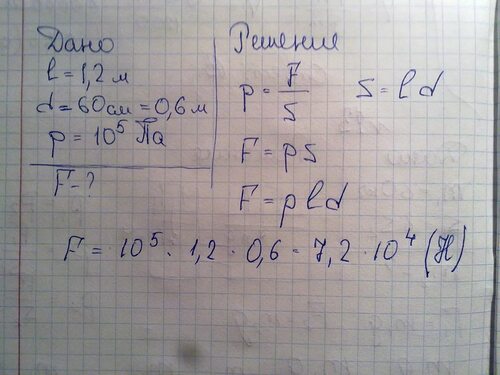 Дано
l = 1,2 м
d = 60см = 0,6 м
p = 10⁵ Па
F - ?
Решение
p = F/S   S = ld
F = pS
F = pld
F = 10⁵ · 1,2 · 0,6 = 7,2 · 10⁴ (Н)